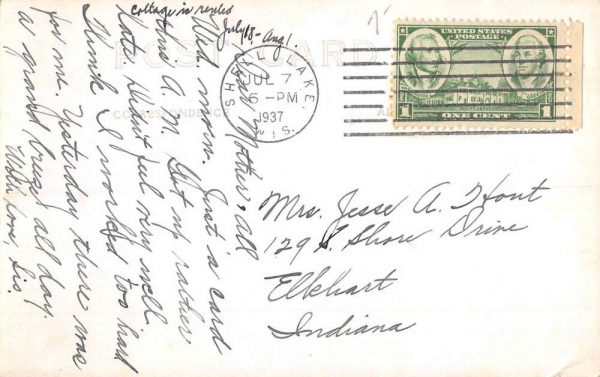 cottage is rented
July 18 - Aug 1
POST CARD
CORRESPONDENCE
Dear Mother & all
Wed. morn. Just a card
this A.M. Got up rather
late. Didn't feel very well.
Think I worked too hard
for me. Yesterday there was
a grand breeze all day.
With love, Sis.
SHELL LAKE,
JUL 7
6-PM
1937
WIS.
UNITED STATES
POSTAGE
1 ONE CENT 1
Mrs. Jesse A. Hout
129 S. Shore Drive
Elkhart
Indiana